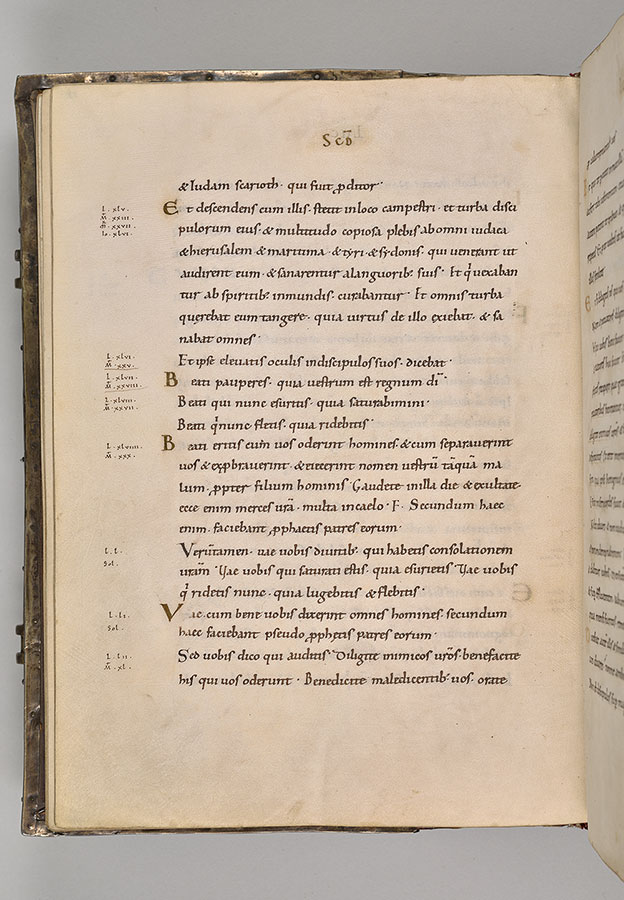 Scd̄
& Iudam scarioth · qui fuit ꝓditor ·
Et descendens cum illis · stetit inloco campestri · et turba disci
pulorum eius · & multitudo copiosa plebis abomni iudaea
& hierusalem & maritima · & tyri · & sydonis · qui uenerant ut
audirent eum · & sanarentur alanguorib; suis · Et q́ uexaban
tur ab spiritib; inmundis · curabantur · Et omnis turba
querebat eum tangere · quia uirtus de illo exiebat · & sa
nabat omnes ·
L · xlv ·
M̄ · xxiii ·
m̄ · xxvii ·
L · xlvi ·
Et ipse eleuatis oculis indiscipulos suos · dicebat ·
Beati pauperes · quia uestrum est regnum dī ·
Beati qui nunc esuritis · quia saturabimini ·
Beati q́ nunc fletis · quia ridebitis ·
L · xlvi ·
M̄ · xxv ·
L · xlvii ·
M̄ · xxviii ·
L · xlviii ·
M̄ · xxvii ·
Beati eritis cum uos oderint homines · & cum separauerint
uos & exꝓbrauerint · & eiecerint nomen uestrū tāquā ma
lum · ꝓpter filium hominis · Gaudete inilla die & exultate ·
ecce enim merces urā · multa incaelo · F · Secundum haec
enim · faciebant ꝓphaetis patres eorum ·
L · xlviiii ·
M̄ · xxx ·
Verūtamen · uae uobis diuitib; qui habetis consolationem
uram̄ · Vae uobis qui saturati estis · quia esurietis · Vae uobis
q́ ridetis nunc · quia lugebitis & flebitis ·
L · l ·
Sol ·
Vae cum bene uobis dixerint omnes homines · secundum
haec faciebant pseudo ꝓphetis patres eorum ·
L · li ·
Sol ·
Sed uobis dico qui auditis · Diligite inimicos urōs · benefacite
his qui uos oderunt · Benedicite maledicentib; uos · orate
L · lii ·
M̄ · xl ·